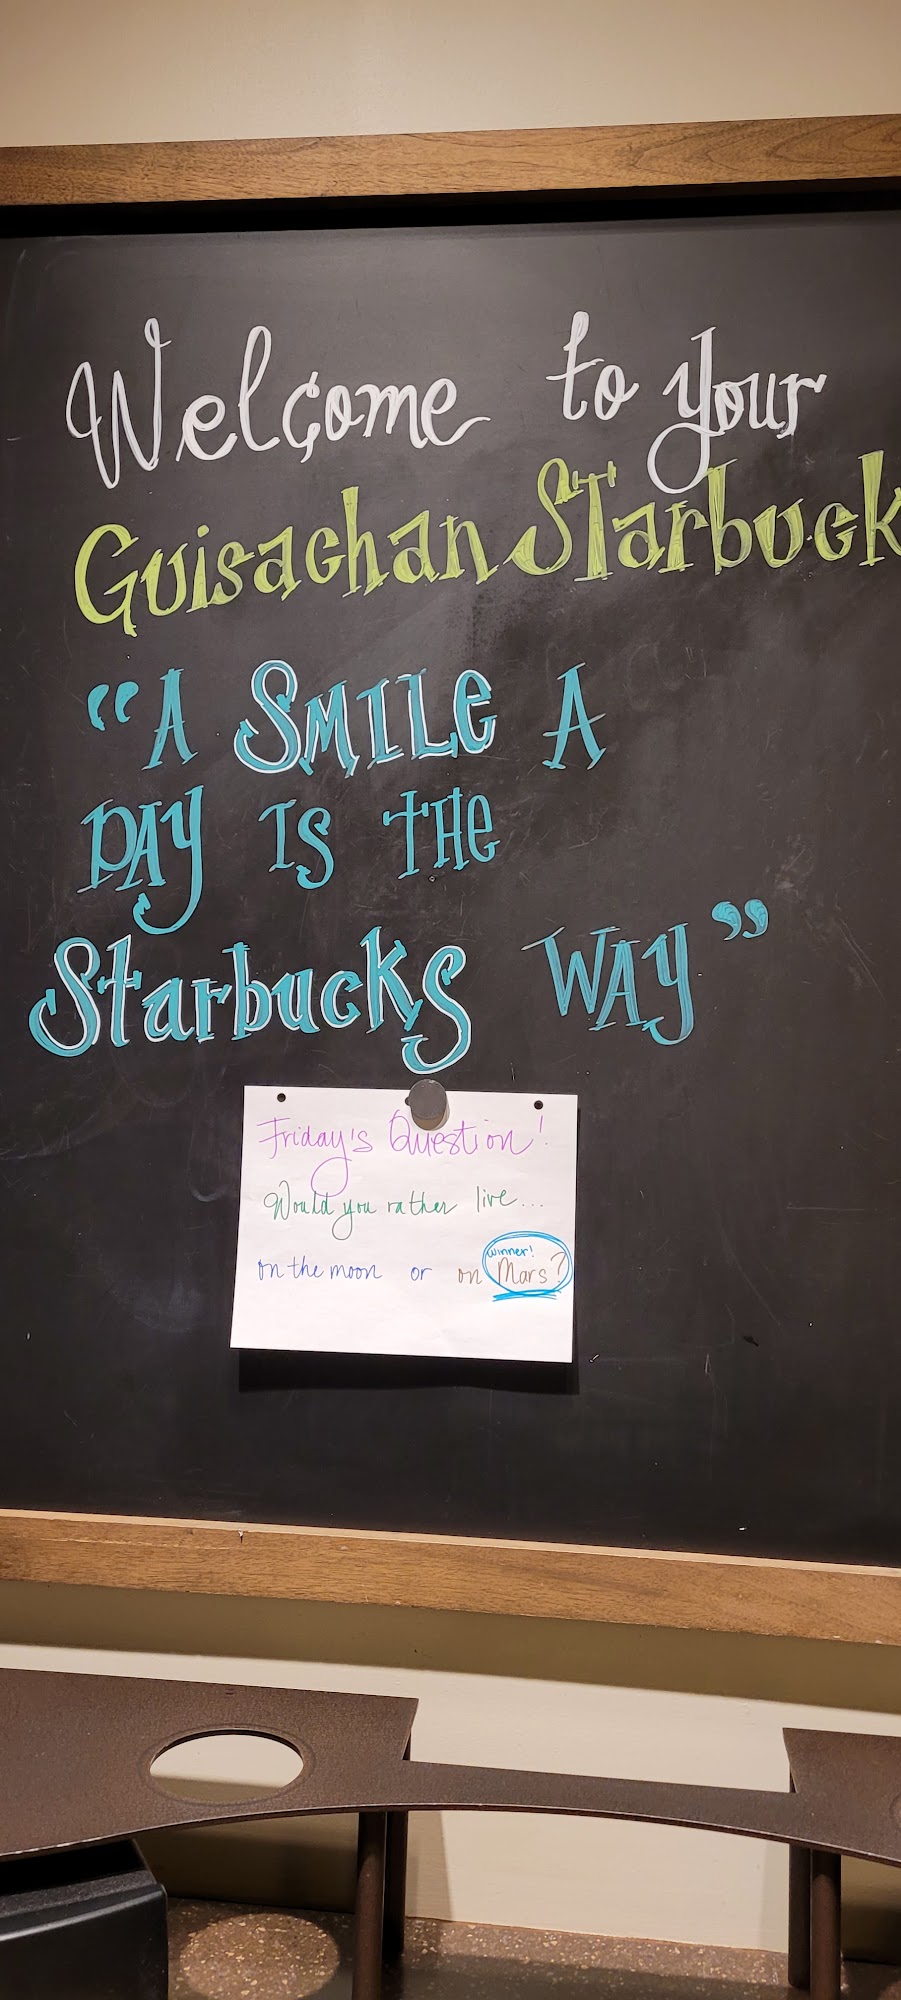 Welcome to your
Guisachan Starbuck
“A SMILE A
DAY IS THE
Starbucks WAY”
Friday's Question!
Would you rather live...
winner!
on the moon or on Mars?